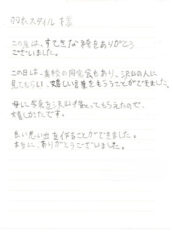 スタイル 様
この度は、すてきな袴をありがとう
ございました。
この日は、高校の同窓会もあり、沢山の人に
見てもらい、嬉しい言葉をもらうことができました。
母に写真を沢山撮ってもらえたので、
嬉しかったです。
良い思い出を作ることができました。
本当に、ありがとうございました。